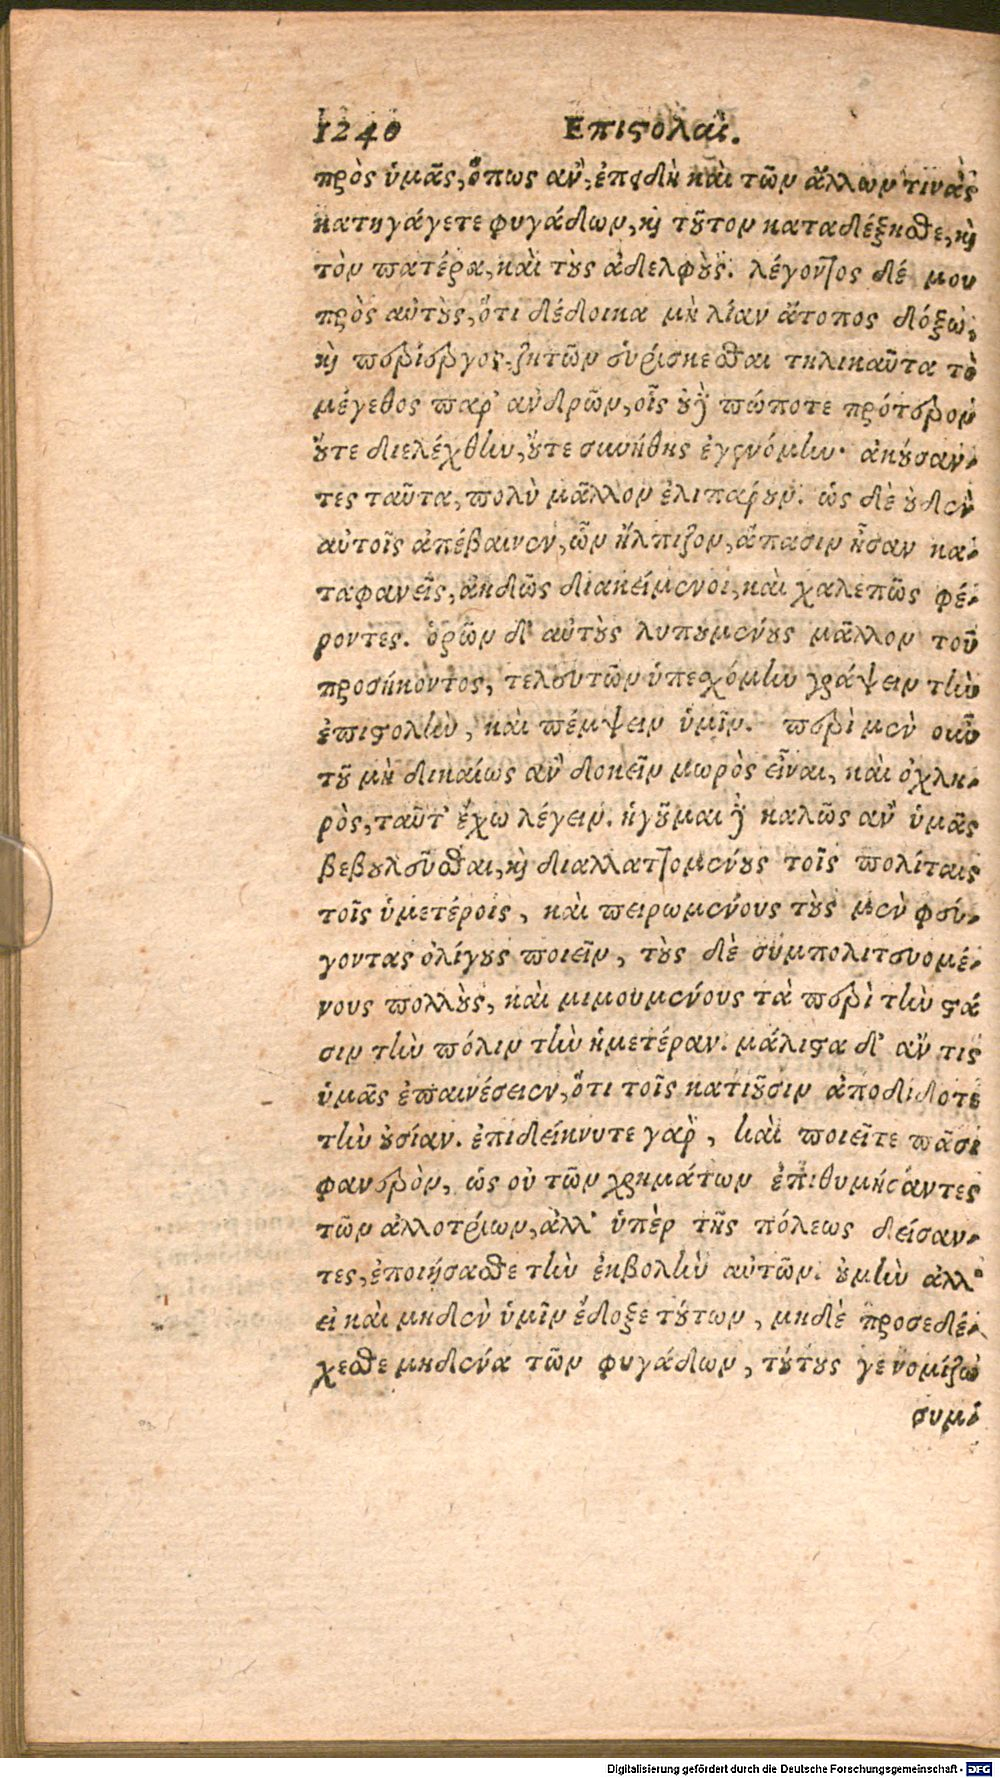 1240 Επιστολαὶ.
πρὸς ὑμᾶς, ὅπως ἂν, ἐπειδὴ καὶ τῶν ἄλλων τινὰς
κατηγάγετε φυγάδων, καὶ τοῦτον καταδέξησθε, καὶ
τὸν πατέρα, καὶ τοὺς ἀδελφούς. λέγοντος δέ μου
πρὸς αὐτοὺς, ὅτι δέδοικα μὴ λίαν ἄτοπος δόξω,
καὶ περίεργος, ζητῶν εὑρίσκεσθαι τηλικαῦτα τὸ
μέγεθος παρ' ἀνδρῶν, οἷς οὐδὲ πώποτε πρότερον
οὔτε διελέχθην, οὔτε συνήθης ἐγενόμην· ἀκούσαν-
τες ταῦτα, πολὺ μᾶλλον ἐλιπάρουν. ὡς δὲ οὐδὲν
αὐτοῖς ἀπέβαινεν, ὧν ἤλπιζον, ἅπασιν ἦσαν κα-
ταφανεῖς, ἀηδῶς διακείμενοι, καὶ χαλεπῶς φέ-
ροντες. ὁρῶν δ' αὐτοὺς λυπουμένους μᾶλλον τοῦ
προσήκοντος, τελευτῶν ὑπεσχόμην γράψειν τὴν
ἐπιστολὴν, καὶ πέμψειν ὑμῖν. περὶ μὲν οὖν
τοῦ μὴ δικαίως ἂν δοκεῖν μωρὸς εἶναι, καὶ ὀχλη-
ρὸς, ταῦτ' ἔχω λέγειν. ἡγοῦμαι δὲ καλῶς ἂν ὑμᾶς
βεβουλεῦσθαι, καὶ διαλλαττομένους τοῖς πολίταις
τοῖς ὑμετέροις, καὶ πειρωμένους τοὺς μὲν φεύ-
γοντας ὀλίγους ποιεῖν, τοὺς δὲ συμπολιτευομέ-
νους πολλοὺς, καὶ μιμουμένους τὰ περὶ τὴν στά
σιν τὴν πόλιν τὴν ἡμετέραν. μάλιστα δ' ἄν τις
ὑμᾶς ἐπαινέσειεν, ὅτι τοῖς κατιοῦσιν ἀποδίδοτε
τὴν οὐσίαν. ἐπιδείκνυτε γὰρ, καὶ ποιεῖτε πᾶσι
φανερὸν, ὡς οὐ τῶν χρημάτων ἐπιθυμήσαντες
τῶν ἀλλοτρίων, ἀλλ' ὑπὲρ τῆς πόλεως δείσαν-
τες, ἐποιήσασθε τὴν ἐκβολὴν αὐτῶν. οὐ μὴν ἀλλ'
εἰ καὶ μηδὲν ὑμῖν ἔδοξε τούτων, μηδὲ προσεδέ-
χεσθε μηδένα τῶν φυγάδων, τούτους γε νομίζω
συμ-
Digitalisierung gefördert durch die Deutsche Forschungsgemeinschaft - DFG